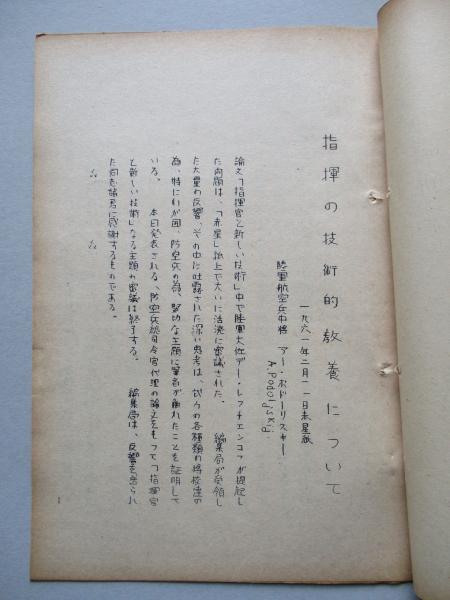 指揮の技術的教養について
一九六一年二月一一日赤星紙
陸軍航空兵中将 アー・ポドーリスキー
A.Podoljskij
論文「指揮官と新しい技術」中で陸軍大佐デー・レフチェンコフが提起し
た問題は、「赤星」紙上で大いに活溌に審議された。 編集局が受領し
た大量の反響、その中に吐露された深い思考は、我々の各種類の将校達の
為、特にわが国、防空兵の為、緊切な主題に筆者が触れたことを証明して
いる。 本日発表される、防空兵総司令官代理の論文をもって「指揮官
と新しい技術」なる主題の審議は終了する。 編集局は、反響を寄られ
た同志諸君に感謝するものである。